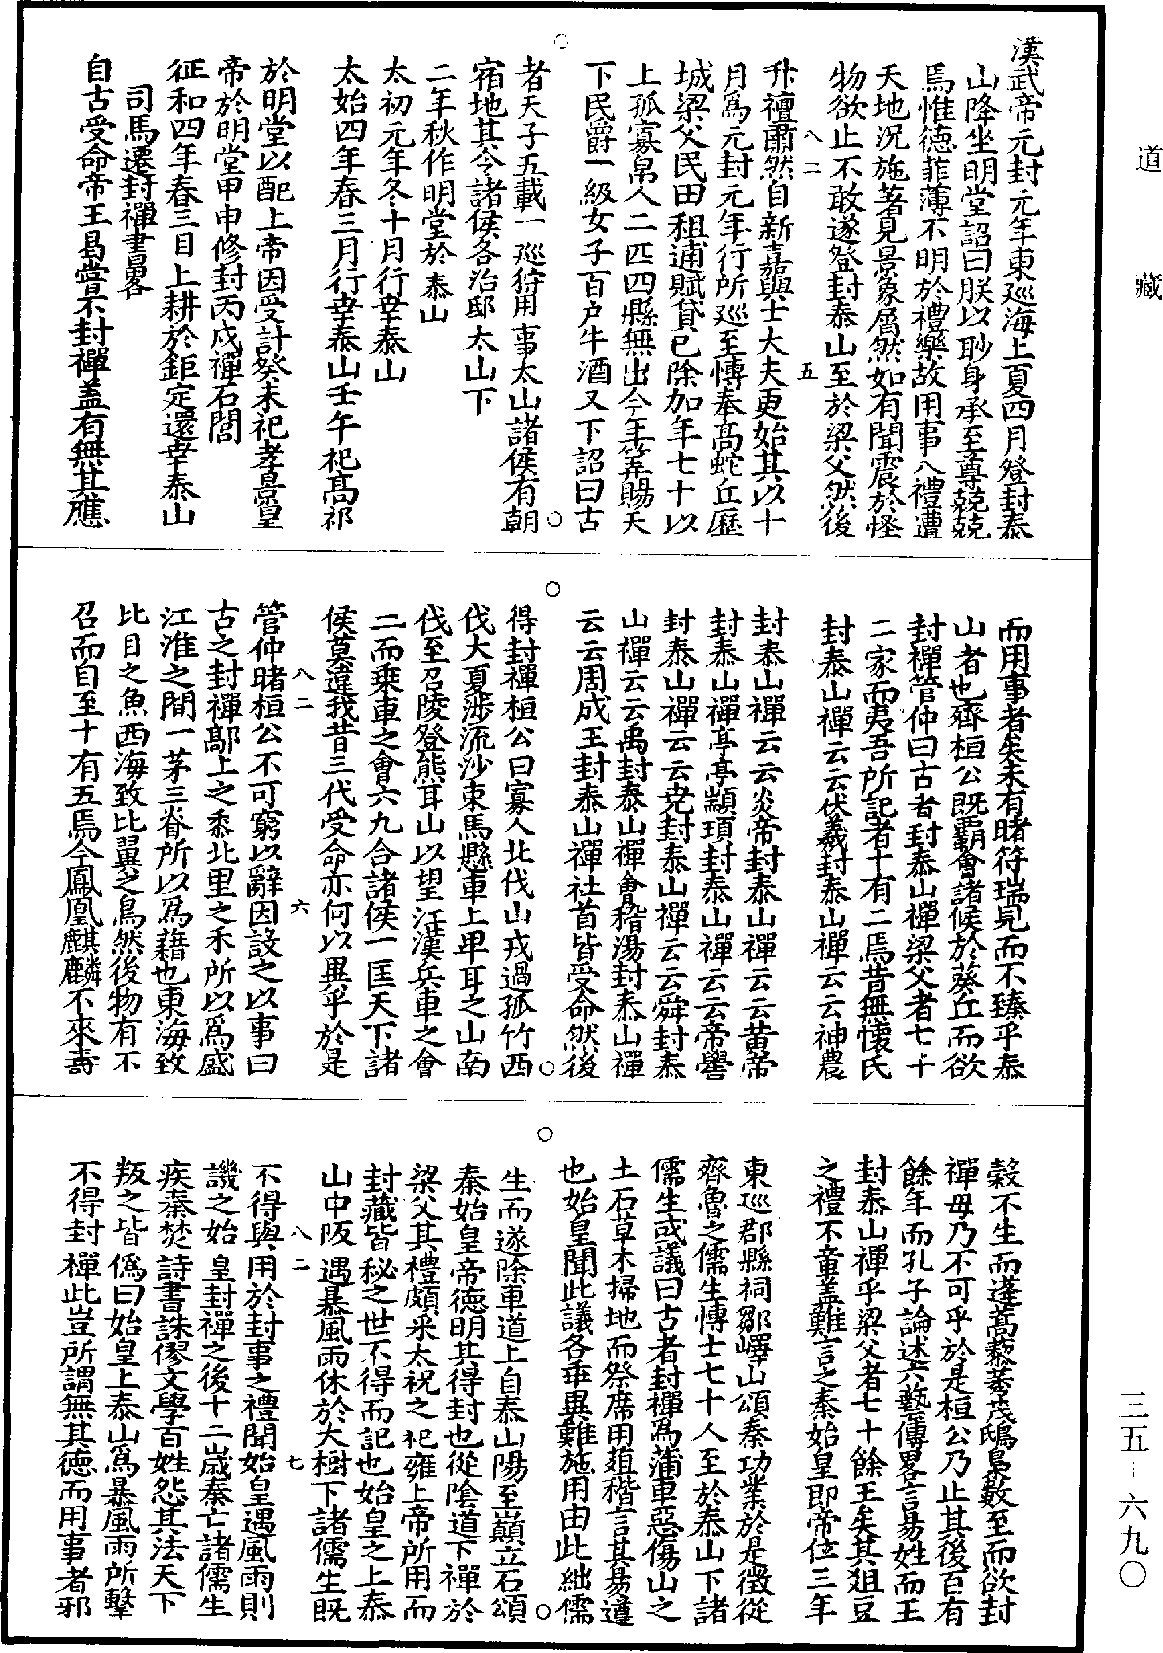 道藏
漢武帝元封元年東巡海上夏四月登封泰
山降坐明堂詔曰朕以眇身承至尊兢兢
焉惟德菲薄不明於禮樂故用事八禮遭
天地況施著見景象屑然如有聞震於怪
物欲止不敢遂登封泰山至於梁父然後
八二
五
升禮肅然自新嘉與士大夫更始其以十
月爲元封元年行所巡至慱奉高蛇丘歷
城梁父民田租逋賦貸已除加年七十以
上孤寡帛人二匹四縣無出今年筭賜天
下民爵一級女子百户牛酒又下詔曰古
者天子五載一巡狩用事太山諸侯有朝
宿地其令諸侯各治邸太山下
二年秋作明堂於泰山
太初元年冬十月行幸泰山
太始四年春三月行幸泰山壬午祀高祁
於明堂以配上帝因受計癸未祀孝景皇
帝於明堂甲申修封丙戍禪石閭
征和四年春三月上耕於鉅定還幸泰山
司馬遷封禪書畧
自古受命帝王曷嘗不封禪盖有無其應
而用事者矣未有睹符瑞見而不臻乎泰
山者也齊桓公既霸會諸侯於葵丘而欲
封禪管仲曰古者封泰山禪梁父者七十
二家而夷吾所記者十有二焉昔無懷氏
封泰山禪云云伏羲封泰山禪云云神農
封泰山禪云云炎帝封泰山禪云云黄帝
封泰山禪亭亭顓頊封泰山禪云云帝嚳
封泰山禪云云尭封泰山禪云云舜封泰
山禪云云禹封泰山禪會稽湯封泰山禪
云云周成王封泰山禪社首皆受命然後
得封禪桓公曰寡人北伐山戎過孤竹西
伐大夏涉流沙束馬縣車上卑耳之山南
伐至召陵登熊耳山以望江漢兵車之會
二而乗車之會六九合諸侯一匡天下諸
侯莫違我昔三代受命亦何以異乎於是
八二
六
管仲睹桓公不可窮以辭因設之以事曰
古之封禪鄗上之黍北里之禾所以爲盛
江淮之間一茅三脊所以爲藉也東海致
比目之魚西海致比翼之鳥然後物有不
召而自至十有五焉今鳳凰麒麟不來壽
糓不生而蓬蒿藜莠茂鴟梟數至而欲封
禪毋乃不可乎於是桓公乃止其後百有
餘年而孔子論述六藝傳畧言易姓而王
封泰山禪乎梁父者七十餘王矣其俎豆
之禮不章盖難言之秦始皇即帝位三年
東巡郡縣祠鄒嶧山頌秦功業於是徵從
齊魯之儒生慱士七十人至於泰山下諸
儒生或議曰古者封禪爲蒲車惡傷山之
土石草木掃地而祭席用葅稭言其易遵
也始皇聞此議各乖異難施用由此絀儒
生而遂除車道上自泰山陽至巔立石頌
秦始皇帝德明其得封也從陰道下禪於
梁父其禮頗采太祝之祀雍上帝所用而
封藏皆秘之世不得而記也始皇之上泰
山中阪遇暴風雨休於大樹下諸儒生既
八二
七
不得與用於封事之禮聞始皇遇風雨則
譏之始皇封禪之後十二歲秦亡諸儒生
疾秦焚詩書誅僇文學百姓怨其法天下
叛之皆僞曰始皇上泰山爲暴風雨所擊
不得封禪此豈所謂無其德而用事者邪
三五－六九〇